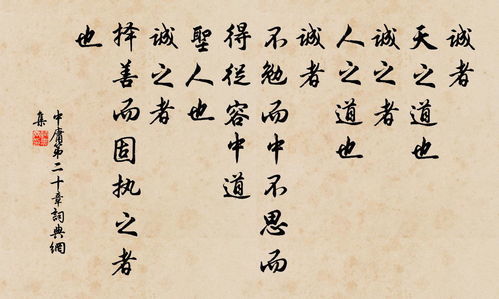 诚者
天之道也
诚之者
人之道也
诚者
不勉而中不思而
得从容中道
聖人也
诚之者
择善而固执之者
也
中庸第二十章詞典網
集